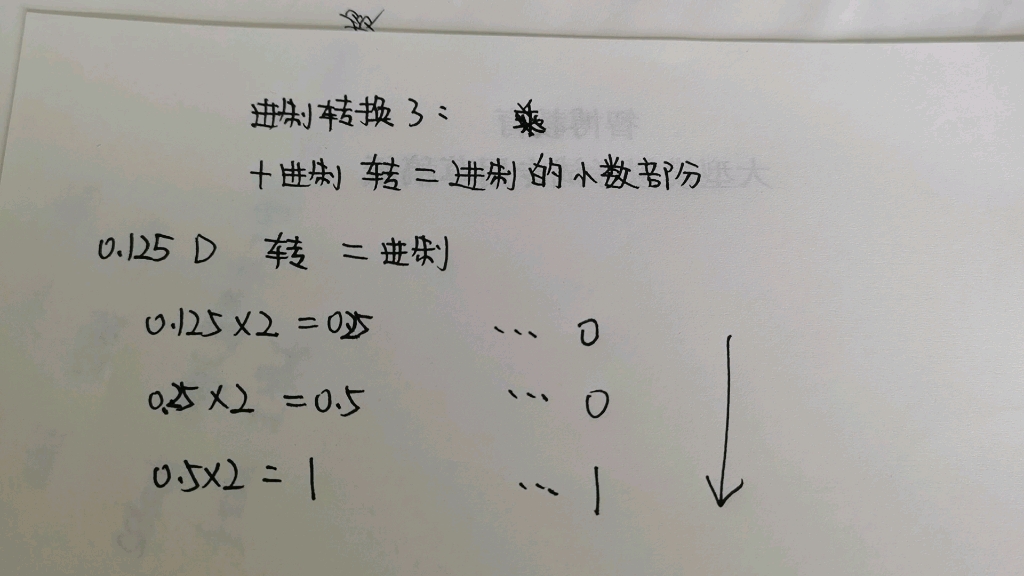 进制转换3:
十进制转二进制的小数部分
0.125 D 转二进制
0.125×2=0.25 … 0
0.25×2=0.5 … 0
0.5×2=1 … 1